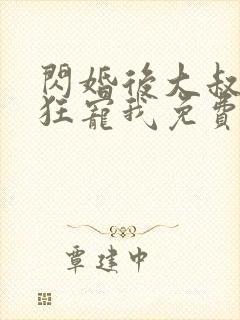 閃婚後大叔
狂寵我免費
覃建中